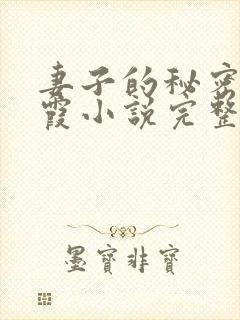 妻子的秘密
霞小说完整
墨寶非寶